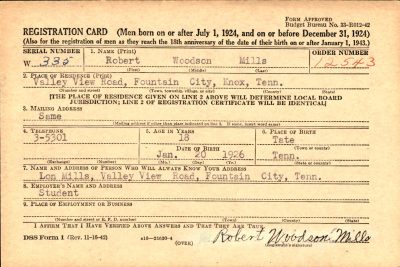 FORM APPROVED
Budget Bureau No. 33-R012-42
REGISTRATION CARD (Men born on or after July 1, 1924, and on or before December 31, 1924)
(Also for the registration of men as they reach the 18th anniversary of the date of their birth on or after January 1, 1943.)
SERIAL NUMBER 1. NAME (Print) ORDER NUMBER
W 335 Robert Woodson Mills 12543
(First) (Middle) (Last)
2. PLACE OF RESIDENCE (Print)
Valley View Road, Fountain City, Knox, Tenn.
(Number and street) (Town, township, village, or city) (County) (State)
[THE PLACE OF RESIDENCE GIVEN ON LINE 2 ABOVE WILL DETERMINE LOCAL BOARD
JURISDICTION; LINE 2 OF REGISTRATION CERTIFICATE WILL BE IDENTICAL]
3. MAILING ADDRESS
Same
[Mailing address if other than place indicated on line 2. If same, insert word same]
4. TELEPHONE 5. AGE IN YEARS 6. PLACE OF BIRTH
3-5301 18 Tate
DATE OF BIRTH (Town or county)
Jan. 20 1926 Tenn.
(Exchange) (Number) (Mo.) (Day) (Yr.) (State or country)
7. NAME AND ADDRESS OF PERSON WHO WILL ALWAYS KNOW YOUR ADDRESS
Lon Mills, Valley View Road, Fountain City, Tenn.
8. EMPLOYER'S NAME AND ADDRESS
Student
9. PLACE OF EMPLOYMENT OR BUSINESS
(Number and street or R. F. D. number) (Town) (County) (State)
I AFFIRM THAT I HAVE VERIFIED ABOVE ANSWERS AND THAT THEY ARE TRUE.
DSS Form 1 (Rev. 11-16-42) (OVER) Robert Woodson Mills
(Registrant's signature)